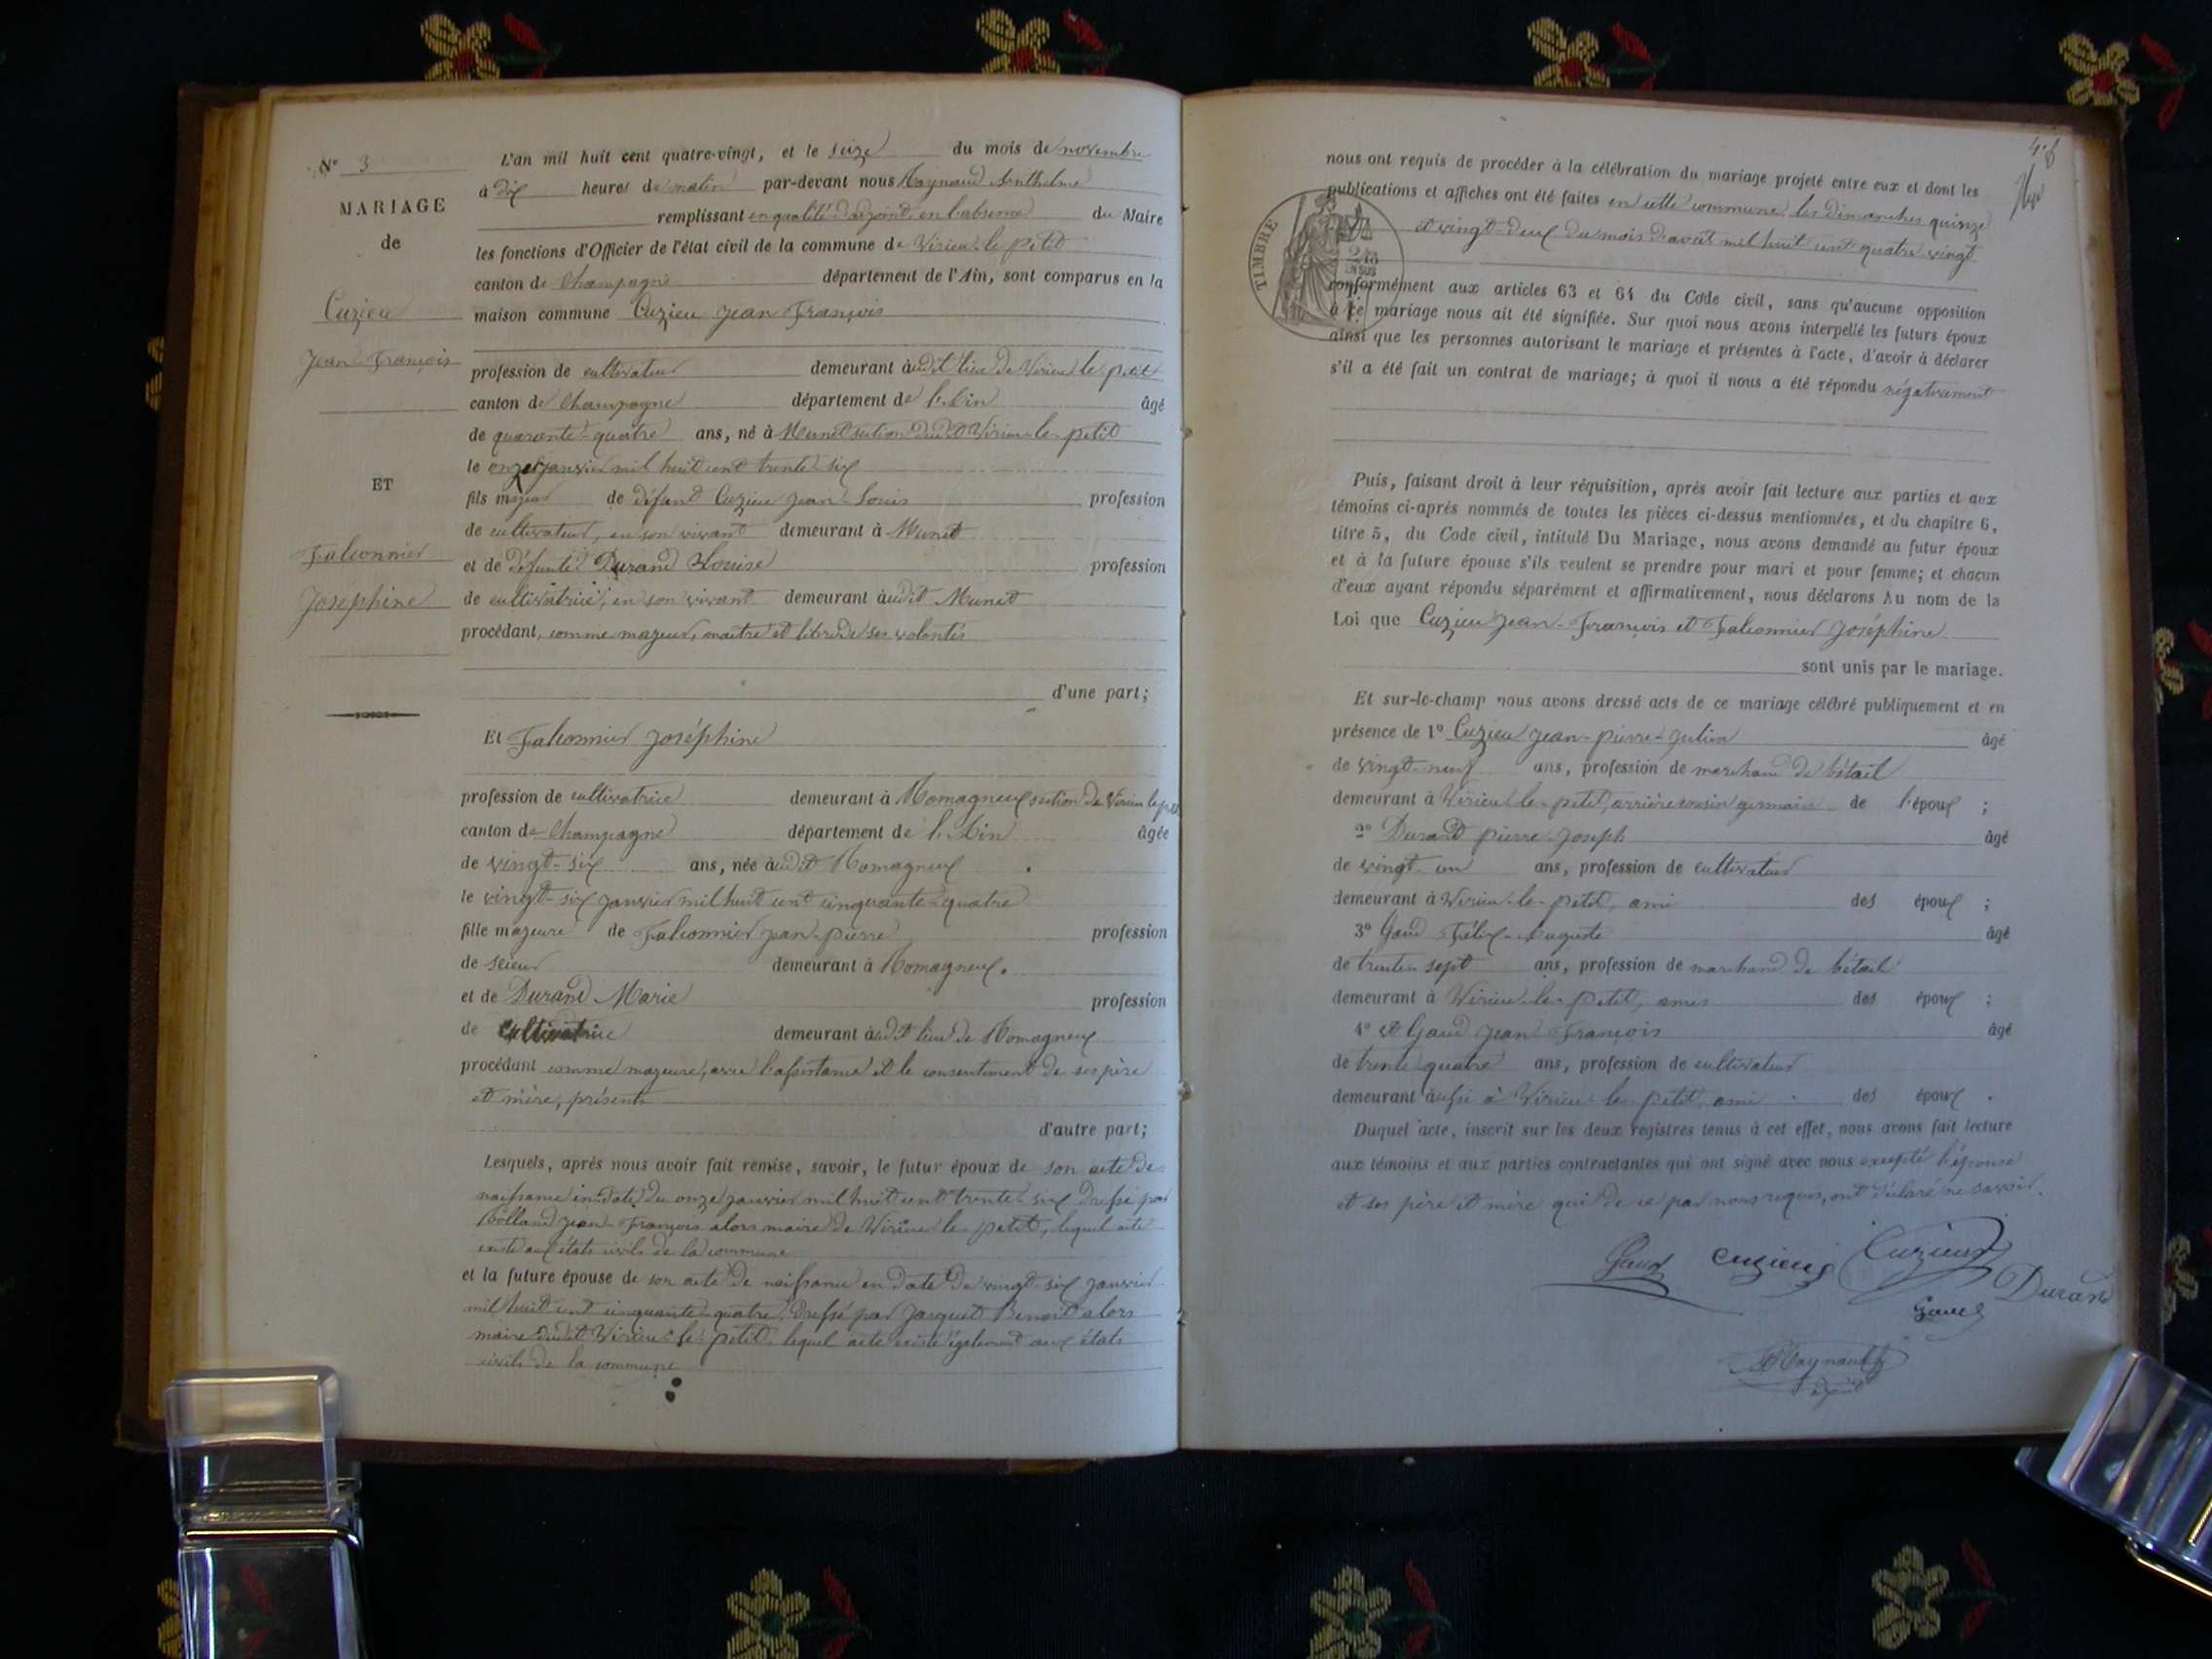 N° 3
MARIAGE
de
Cuzieu
Jean François
ET
Falconnier
Joséphine
L'an mil huit cent quatre-vingt, et le seize du mois de novembre
à dix heures du matin par-devant nous Raynaud Anthelme
remplissant en qualité d'adjoint en l'absence du Maire
les fonctions d'Officier de l'état civil de la commune de Virieu-le-petit
canton de Champagne département de l'Ain, sont comparus en la
maison commune Cuzieu Jean François
profession de cultivateur demeurant à udit lieu de Virieu le petit
canton de Champagne département de l'Ain âgé
de quarante-quatre ans, né à Munet section dudit Virieu-le-petit
le onze janvier mil huit cent trente-six
fils majeur de défunt Cuzieu Jean-Louis profession
de cultivateur, en son vivant demeurant à Munet
et de défunte Durand Louise profession
de cultivatrice, en son vivant demeurant à udit Munet
procédant, comme majeur, maître et libre de ses volontés
d'une part;
Et Falconnier Joséphine
profession de cultivatrice demeurant à Romagneux section de Virieu le petit
canton de Champagne département de l'Ain âgée
de vingt-six ans, née à udit Romagneux
le vingt-six janvier mil huit cent cinquante-quatre
fille majeure de Falconnier Jean-pierre profession
de scieur demeurant à Romagneux.
et de Durand Marie profession
de cultivatrice demeurant à udit lieu de Romagneux
procédant comme majeure, avec l'assistance et le consentement de ses père
et mère, présents
d'autre part;
Lesquels, après nous avoir fait remise, savoir, le futur époux de son acte de
naissance en date du onze janvier mil huit cent trente-six dressé par
Jean-François alors maire de Virieu-le-petit, lequel acte
existe aux états civils de la commune
et la future épouse de son acte de naissance en date du vingt-six janvier
mil huit cent cinquante-quatre, dressé par Jacquet Benoit alors
maire dudit Virieu-le-petit, lequel acte existe également aux états
civils de la commune
TIMBRE
nous ont requis de procéder à la célébration du mariage projeté entre eux et dont les
publications et affiches ont été faites en cette commune, les dimanches quinze
et vingt-deux du mois d'août mil huit cent quatre-vingt
conformément aux articles 63 et 64 du Code civil, sans qu'aucune opposition
à ce mariage nous ait été signifiée. Sur quoi nous avons interpellé les futurs époux
ainsi que les personnes autorisant le mariage et présentes à l'acte, d'avoir à déclarer
s'il a été fait un contrat de mariage; à quoi il nous a été répondu négativement
Puis, faisant droit à leur réquisition, après avoir fait lecture aux parties et aux
témoins ci-après nommés de toutes les pièces ci-dessus mentionnées, et du chapitre 6,
titre 5, du Code civil, intitulé Du Mariage, nous avons demandé au futur époux
et à la future épouse s'ils veulent se prendre pour mari et pour femme; et chacun
d'eux ayant répondu séparément et affirmativement, nous déclarons Au nom de la
Loi que Cuzieu Jean-François et Falconnier Joséphine
sont unis par le mariage.
Et sur-le-champ nous avons dressé acte de ce mariage célébré publiquement et en
présence de 1° Cuzieu Jean-pierre-Julien âgé
de vingt-neuf ans, profession de marchand de bétail
demeurant à Virieu-le-petit, arrière cousin germain de l'époux ;
2° Durand pierre-Joseph âgé
de vingt-un ans, profession de cultivateur
demeurant à Virieu-le-petit, ami des époux ;
3° Gaud Félix-Auguste âgé
de trente-sept ans, profession de marchand de bétail
demeurant à Virieu-le-petit, amis des époux ;
4° et Gaud Jean François âgé
de trente quatre ans, profession de cultivateur
demeurant aussi à Virieu-le-petit, ami des époux .
Duquel acte, inscrit sur les deux registres tenus à cet effet, nous avons fait lecture
aux témoins et aux parties contractantes qui ont signé avec nous excepté l'épouse
et ses père et mère qui de ce par nous requis, ont déclaré ne savoir.
Gaud Cuzieu Cuzieux
Durand
Gaud
Raynaud
adjoint